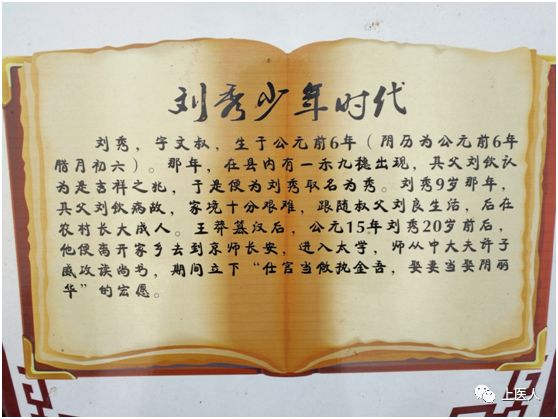 刘秀少年时代
刘秀，字文叔，生于公元前6年（阴历为公元前6年
腊月初六）。那年，在县内有一禾九穗出现，其父刘钦认
为是吉祥之兆，于是便为刘秀取名为秀。刘秀9岁那年，
其父刘钦病故，家境十分艰难，跟随叔父刘良生活，后在
农村长大成人。王莽篡汉后，公元15年刘秀20岁前后，
他便离开家乡去到京师长安，进入太学，师从中大夫许子
威攻读尚书，期间立下“仕官当做执金吾，娶妻当娶阴丽
华”的宏愿。
上医人